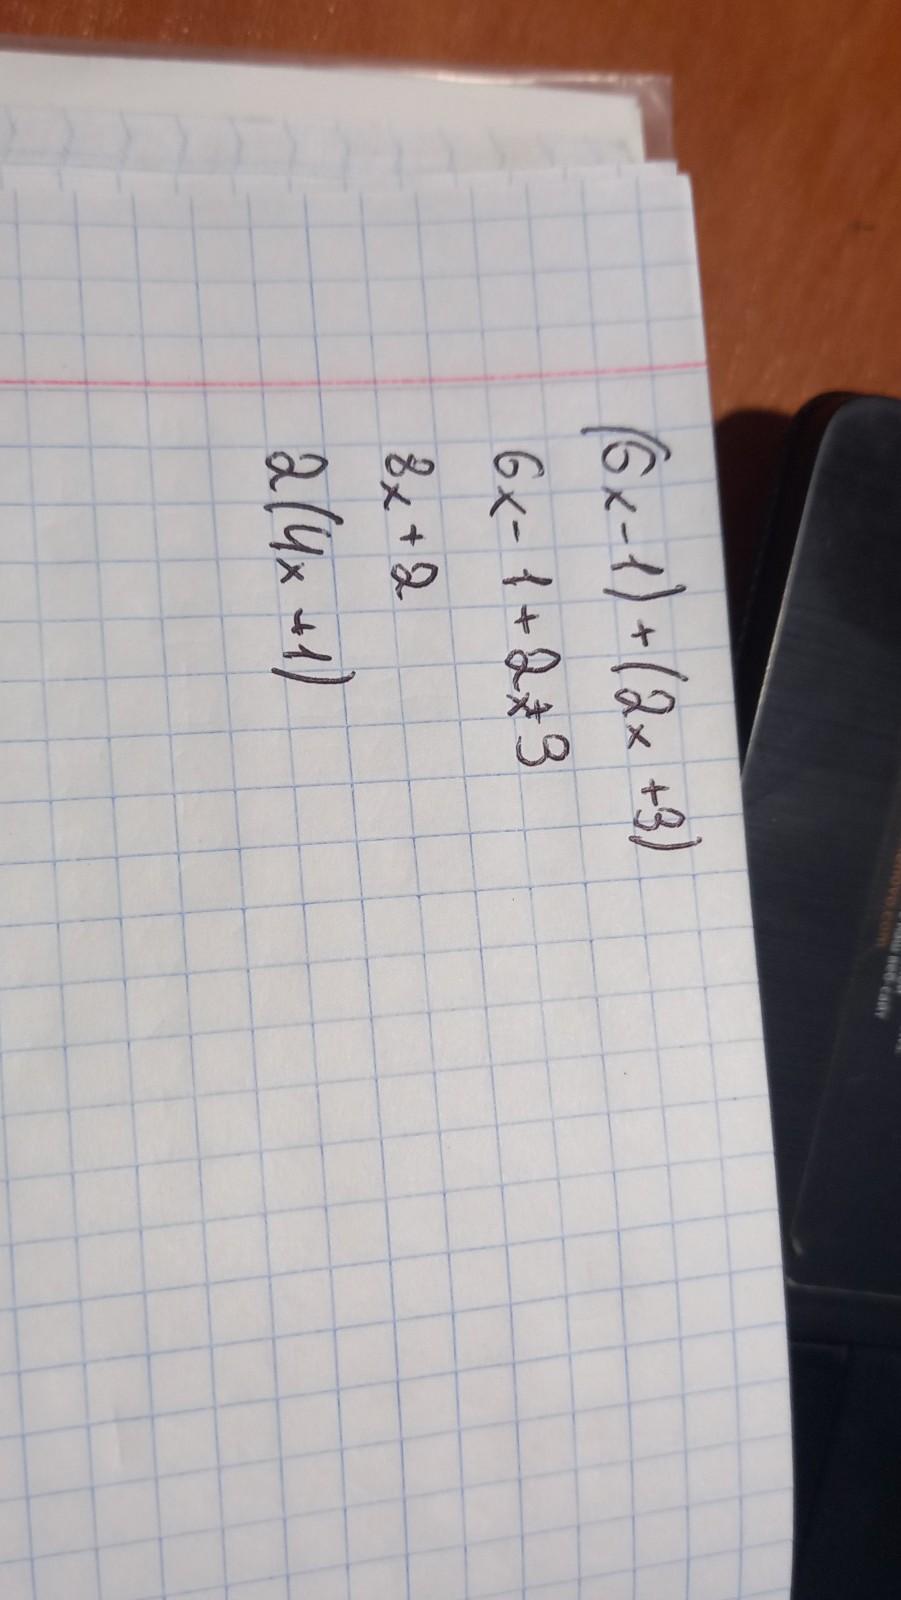 (6x-1)+(2x+3)
6x-1+2x+3
8x+2
2(4x+1)